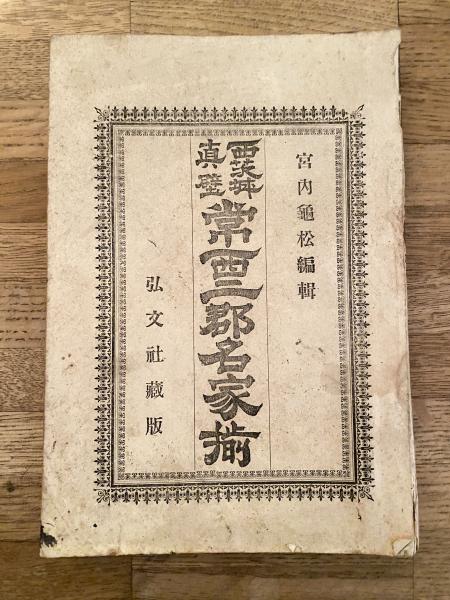 宮内龜松編輯
西茨城
真壁
常西二郡名家揃
弘文社藏版